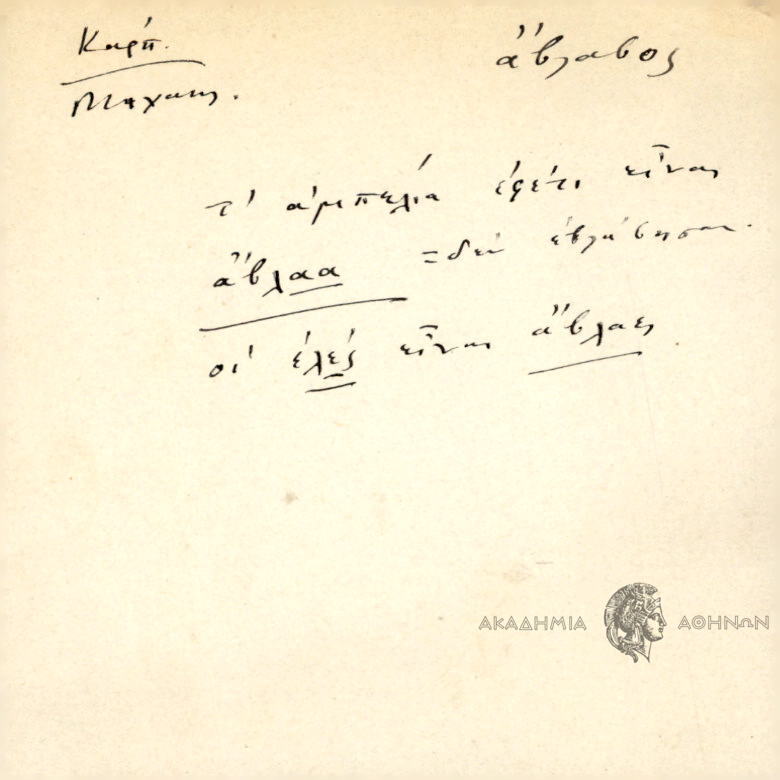 Καρπ.
ἄβλαβος
Μιχαηλ.
τ' ἀμπελια ἐφέτι εἶναι
ἄβλαα =δεν ἐβλάβησαν.
οἱ ἐλές εἶναι ἄβλαες
ΑΚΑΔΗΜΙΑ ΑΘΗΝΩΝ